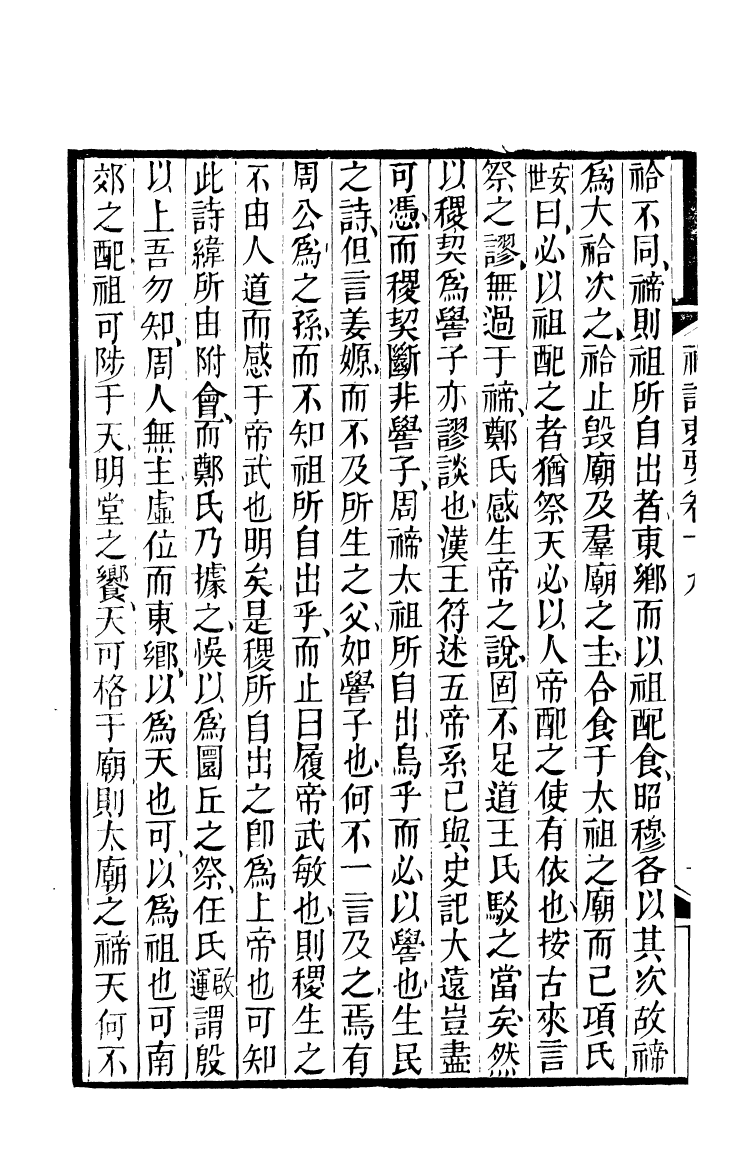 祫不同、禘則祖所自出者東鄉而以祖配食、昭穆各以其次故禘
爲大祫次之、祫止毀廟及羣廟之主、合食于太祖之廟而已項氏
安世曰、必以祖配之者猶祭天必以人帝配之使有依也、按古來言
祭之謬、無過于禘、鄭氏感生帝之說、固不足道王氏駮之當矣、然
以稷契爲嚳子亦謬談也、漢王符述五帝系已與史記大遠豈盡
可憑、而稷契斷非嚳子、周禘太祖所自出、烏乎而必以嚳也、生民
之詩、但言姜嫄、而不及所生之父、如嚳子也、何不一言及之、焉有
周公爲之孫、而不知祖所自出乎、而止曰履帝武敏也、則稷生之
不由人道而感于帝武也明矣、是稷所自出之卽爲上帝也可知
此詩緯所由附會、而鄭氏乃據之、悞以爲圜丘之祭、任氏啟運謂殷
以上吾勿知、周人無主虛位而東鄉、以爲天也可、以爲祖也可南
郊之配、祖可陟于天、明堂之饗、天可格于廟、則太廟之禘天何不
禮記
卷十九